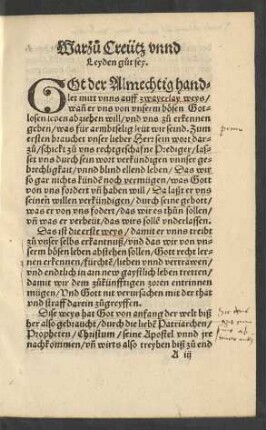 Warzů Creütz vnnd
Leyden gůt sey.
GOt der Almechtig hand-
let mitt vnns auff zwayerlay weys/
wañ er vns von vnserm bösen Got-
losen leben abziehen will/vnd vns zů erkennen
geben/was für armbtselig leüt wir seind. Zum
ersten brauchet vnser lieber Herr sein wort dar-
zů/schickt zů vns rechtgeschafne Prediger/las-
set vns durch sein wort verkündigen vnnser ge-
brechligkait/vnnd blind ellend leben/Das wir
so gar nichts künde noch vermügen/was Got
von vns fordert vñ haben will/Da laßt er vns
seinen willen verkündigen/durch seine gebott/
was er von vns fordert/das wir es thůn sollen/
vñ was er verbeüt/das wirs sollē vnderlassen.
Das ist die erste weys/damit er vnns treibt
zů vnser selbs erkantnuß/vnd das wir von vn-
serm bösen leben abstehen sollen/Gott recht ler-
nen erkennen/fürchtē/lieben vnnd vertrawen/
vnd endtlich in ain new gaystlich leben tretten/
damit wir dem zůkünfftigen zoren entrinnen
mügen/Vnd Gott nit verursachen mit der that
vnd straff darein zůgreyffen.
Dise weys hat Got von anfang der welt biß
her also gebraucht/durch die liebē Patriarchen/
Propheten/Christum/seine Apostel vnnd jre
nachkommen/vñ wirts also treyben biß zů end
A iij